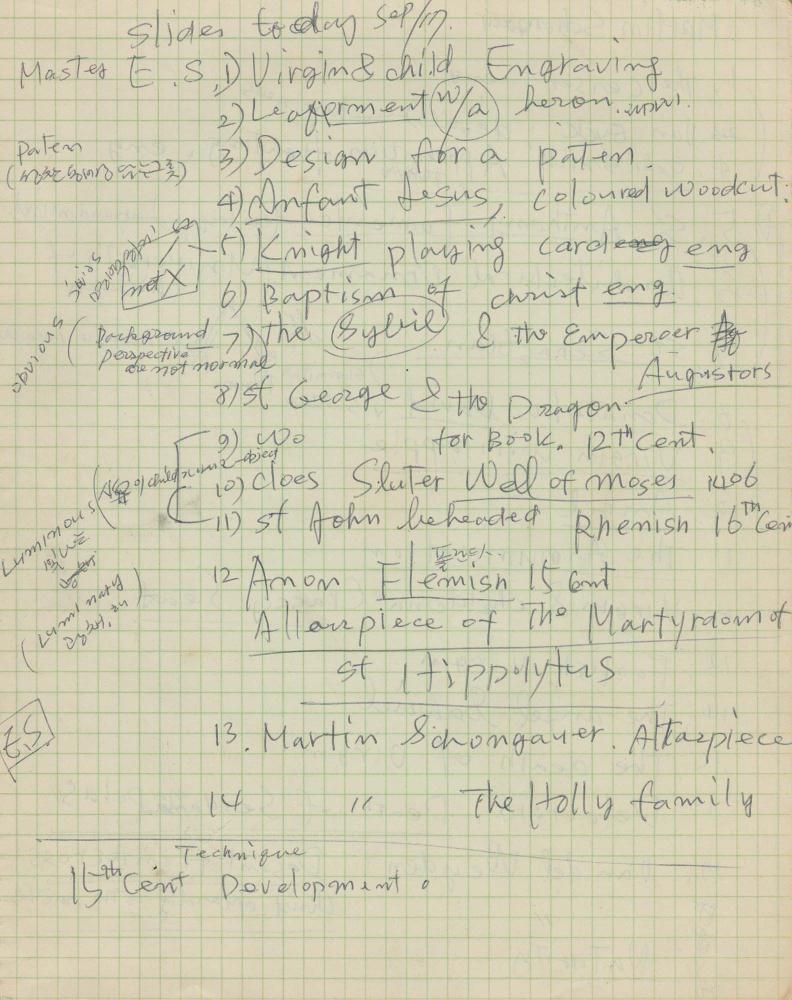 Slides today Sep/17.
Master E.S, 1) Virgin & child Engraving
2) Leaf orment w/a heron.
Paten
3) Design for a paten.
4) Infant Jesus, coloured woodcut.
5) Knight playing card eng
not X
6) Baptism of christ eng.
obvious
(Background perspective are not normal
7) The Sybil & the Emperoer Augustors
8) St George & the Dragon
9) Wo for Book. 12th Cent.
10) Cloes Sluter Well of moses 1406
11) St John beheaded Rhenish 16th Cen
Luminous
(Luminary
플란다스
12 Anon Flemish 15 Cent
Altarpiece of The Martyrdom of
St Hippolytus
ES
13. Martin Schongauer. Altarpiece
14 " The Holly family
Technique
15th Cent Development.